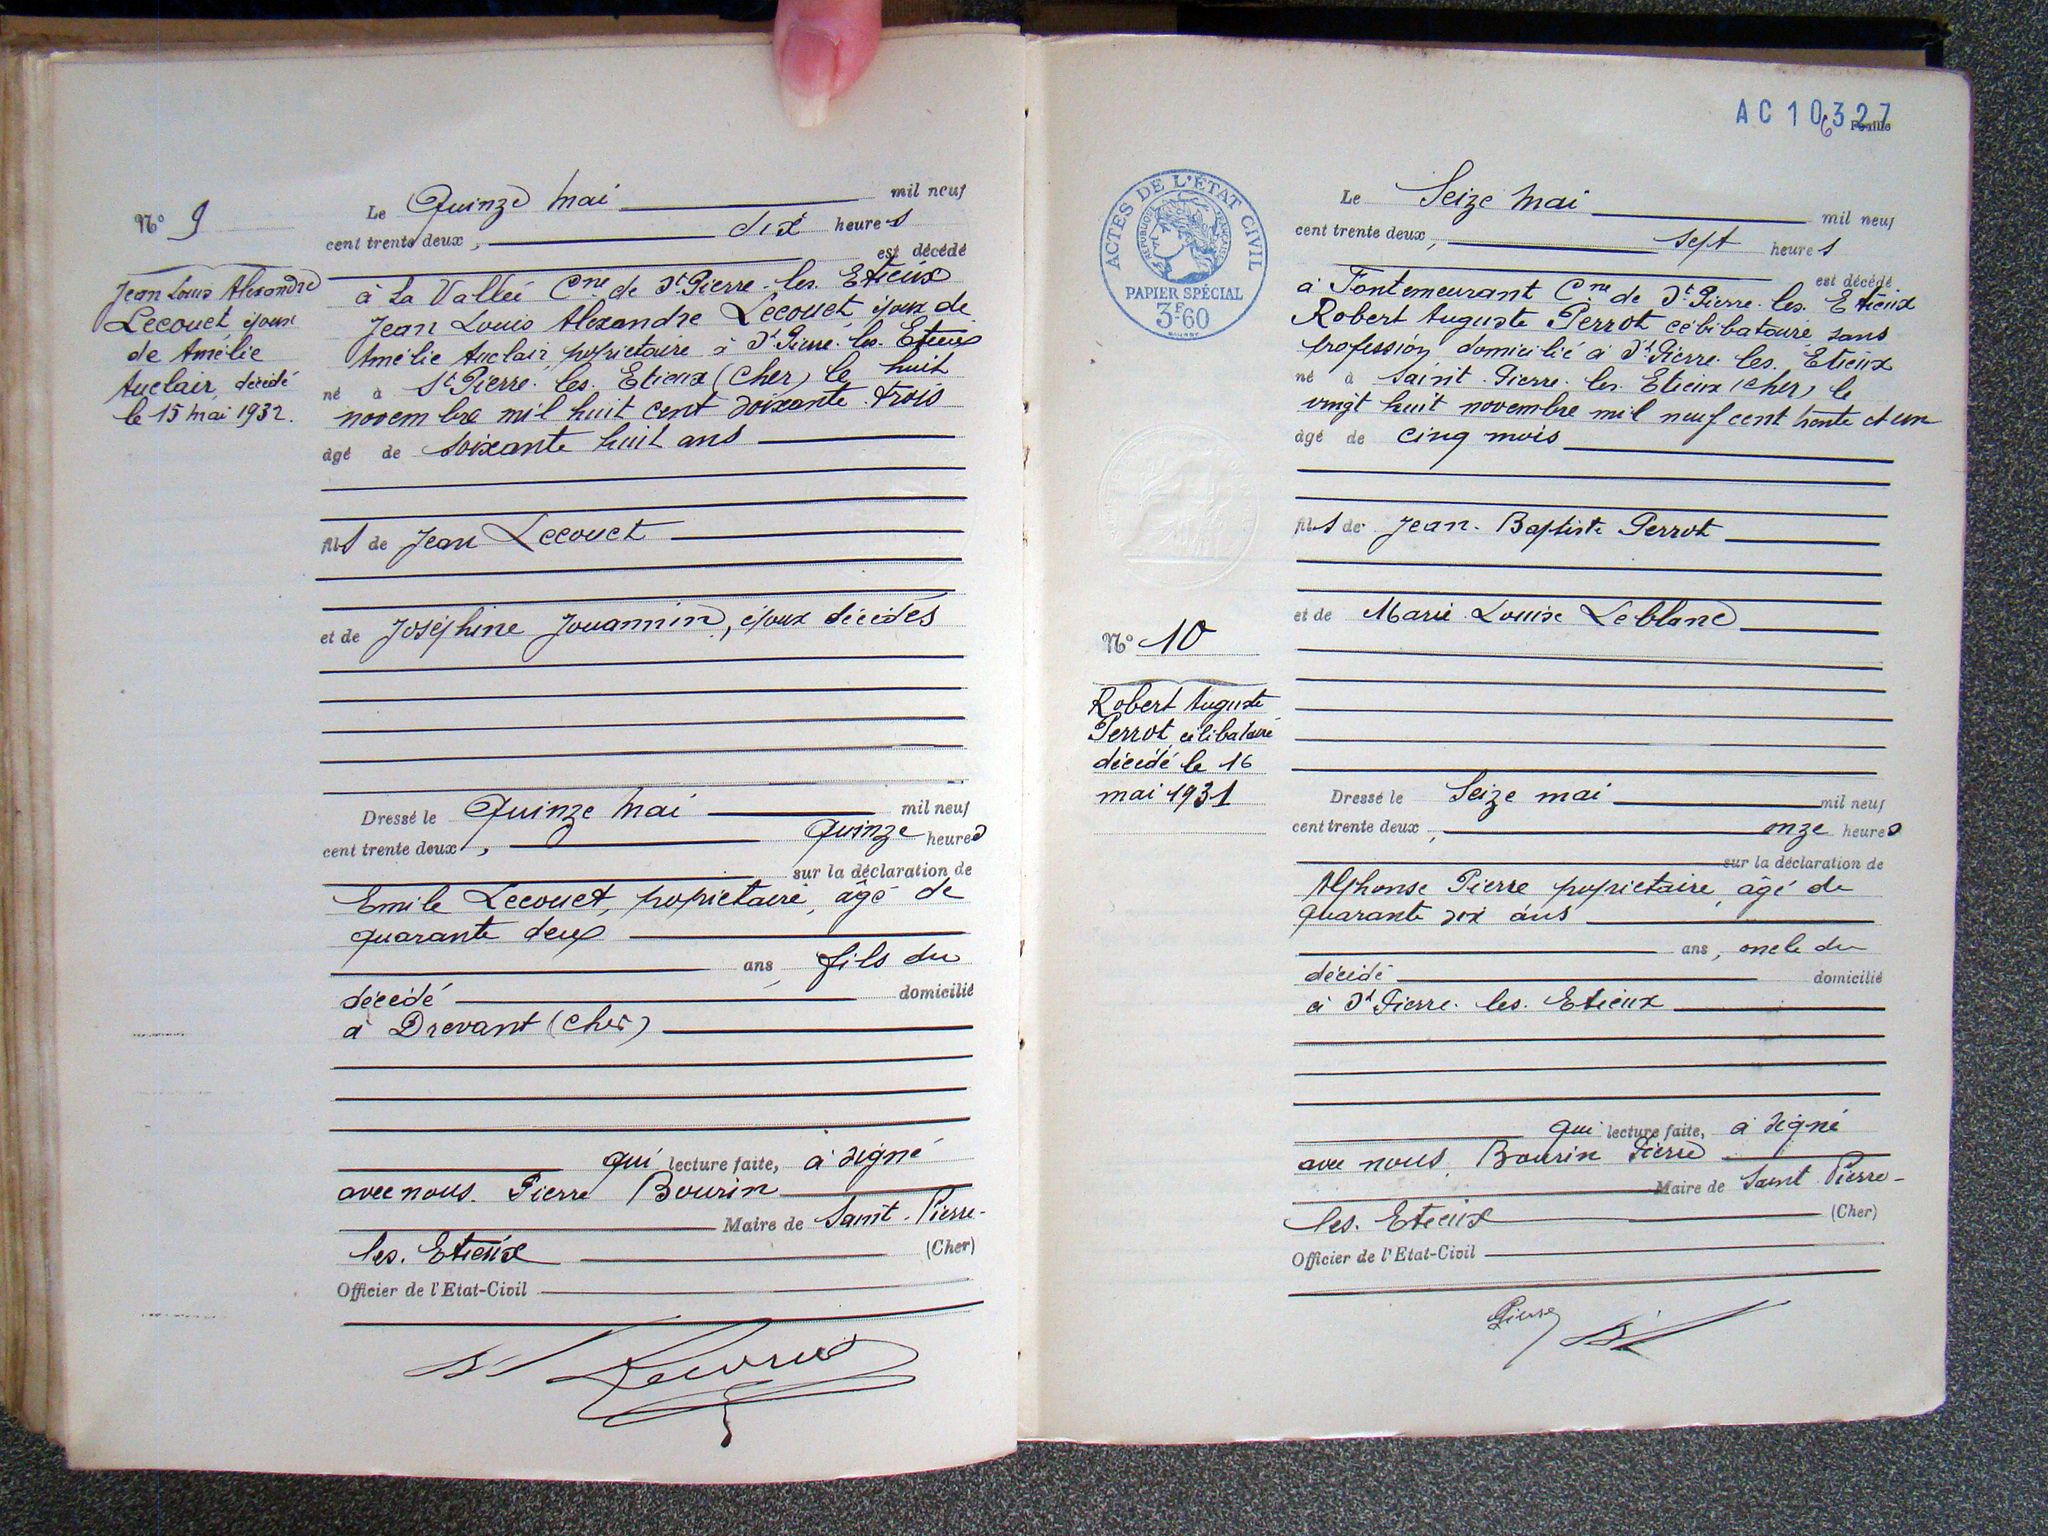 Nº 9
Jean Louis Alexandre
Lecouet époux
de Amélie
Auclair, décédé
le 15 mai 1932.
Le Quinze Mai mil neuf
cent trente deux, dix heures
est décédé
à La Vallée Cne de St Pierre-les-Etieux
Jean Louis Alexandre Lecouet, époux de
Amélie Auclair, propriétaire à St Pierre-les-Etieux
né à St Pierre-les-Etieux (Cher) le huit
novembre mil huit cent soixante-trois
âgé de soixante huit ans
fils de Jean Lecouet
et de Joséphine Jouannin, époux décédés
Dressé le Quinze Mai mil neuf
cent trente deux, quinze heures
sur la déclaration de
Emile Lecouet, propriétaire, âgé de
quarante deux
ans, fils du
décédé domicilié
à Drevant (Cher)
qui lecture faite, a signé
avec nous. Pierre Bourin
Maire de Saint-Pierre-
les-Etieux (Cher)
Officier de l'Etat-Civil
AC 10327
6 Feuille
ACTES DE L'ÉTAT CIVIL
RÉPUBLIQUE FRANÇAISE
PAPIER SPÉCIAL
3F60
Nº 10
Robert Auguste
Perrot célibataire
décédé le 16
mai 1931
Le Seize Mai mil neuf
cent trente deux, sept heures
est décédé
à Fontemeurant Cne de St Pierre-les-Etieux
Robert Auguste Perrot célibataire, sans
profession, domicilié à St Pierre-les-Etieux
né à Saint-Pierre-les-Etieux (Cher) le
vingt huit novembre mil neuf cent trente et un
âgé de cinq mois
fils de Jean-Baptiste Perrot
et de Marie Louise Leblanc
Dressé le Seize mai mil neuf
cent trente deux, onze heures
sur la déclaration de
Alphonse Pierre propriétaire, âgé de
quarante six ans
ans, oncle du
décédé domicilié
à St Pierre-les-Etieux
qui lecture faite, a signé
avec nous, Bourin Pierre
Maire de Saint-Pierre-
les-Etieux (Cher)
Officier de l'Etat-Civil
Pierre